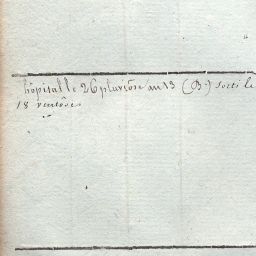 hôpital le 26 pluviose an 13 (B.) sorti le
18 ventôse